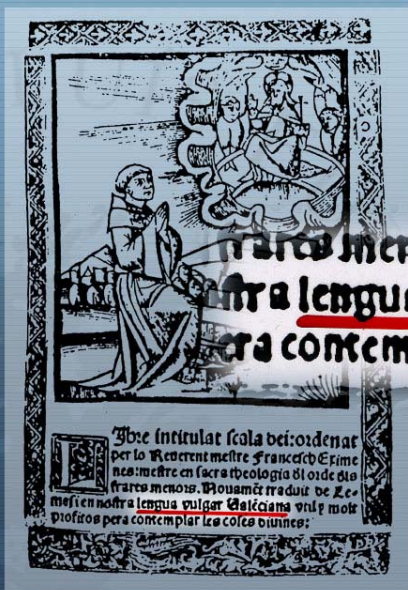 frares men
tra lengu
era contem
LJbre intitulat scala dei:ordenat
per lo Reverent mestre Francesch Exime
nes:mestre en sacra theologia dl orde dls
frares menors. Nouamēt traduit de Le=
mesi en nostra lengua vulgar Valēciana vtil y molt
profitos pera contemplar les coses diuines: